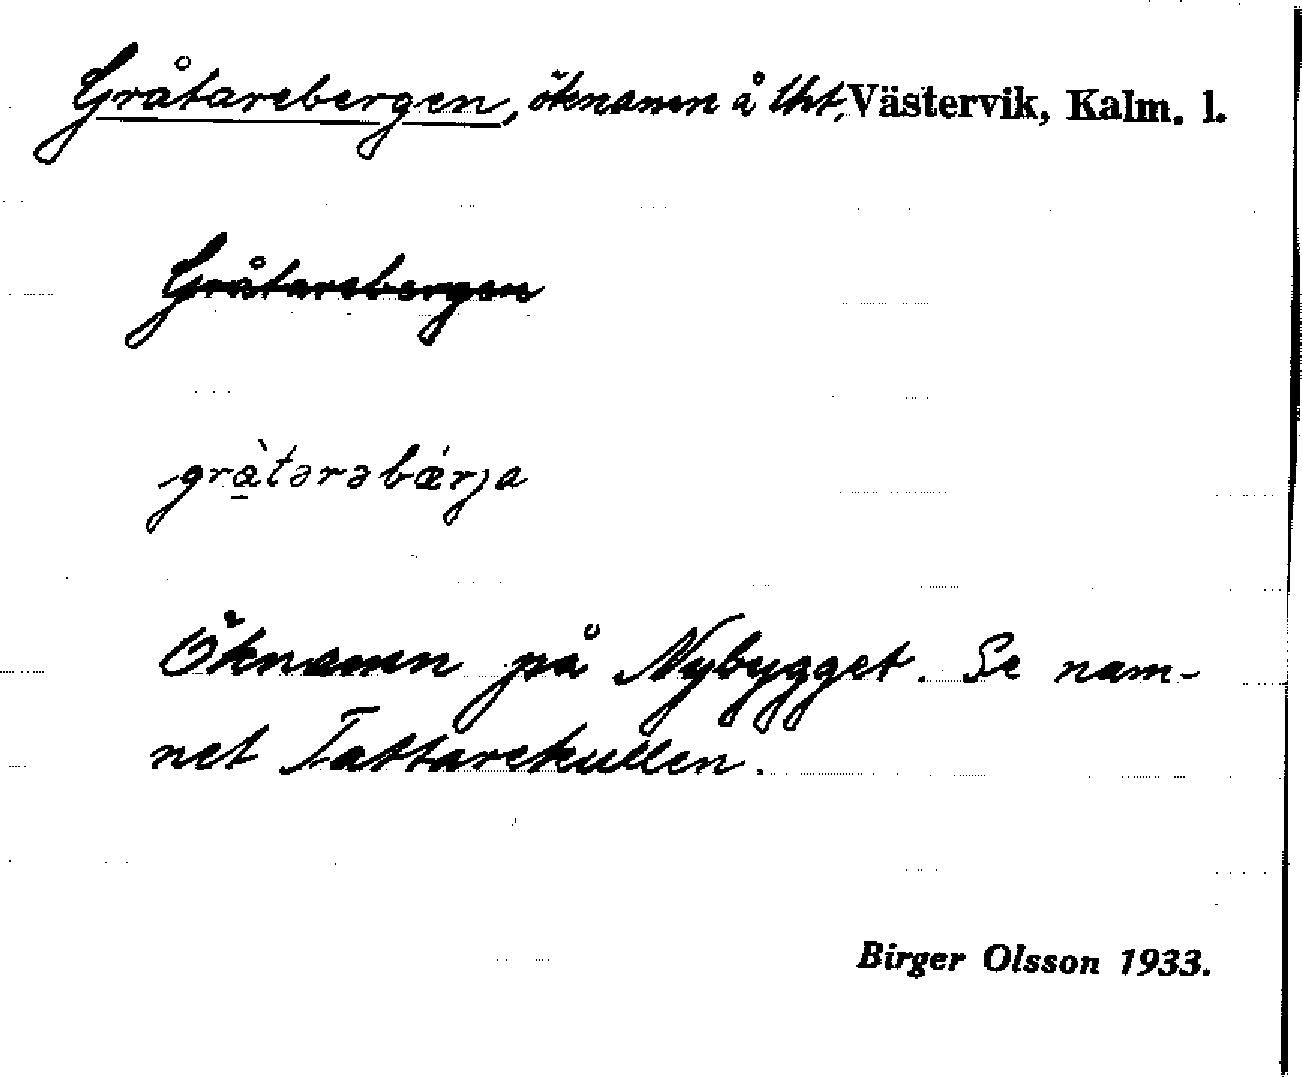 Gråtarebergen, öknamn å lht, Västervik, Kalm. l.
Gråtarebergen
grà̱tərəbǽrja
Öknamn på Nybygget. Se nam-
net Tattarekullen.
Birger Olsson 1933.